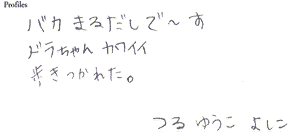 Profiles
バカまるだしで〜す
ドラちゃんカワイイ
歩きつかれた。
つる ゆうこ よしこ